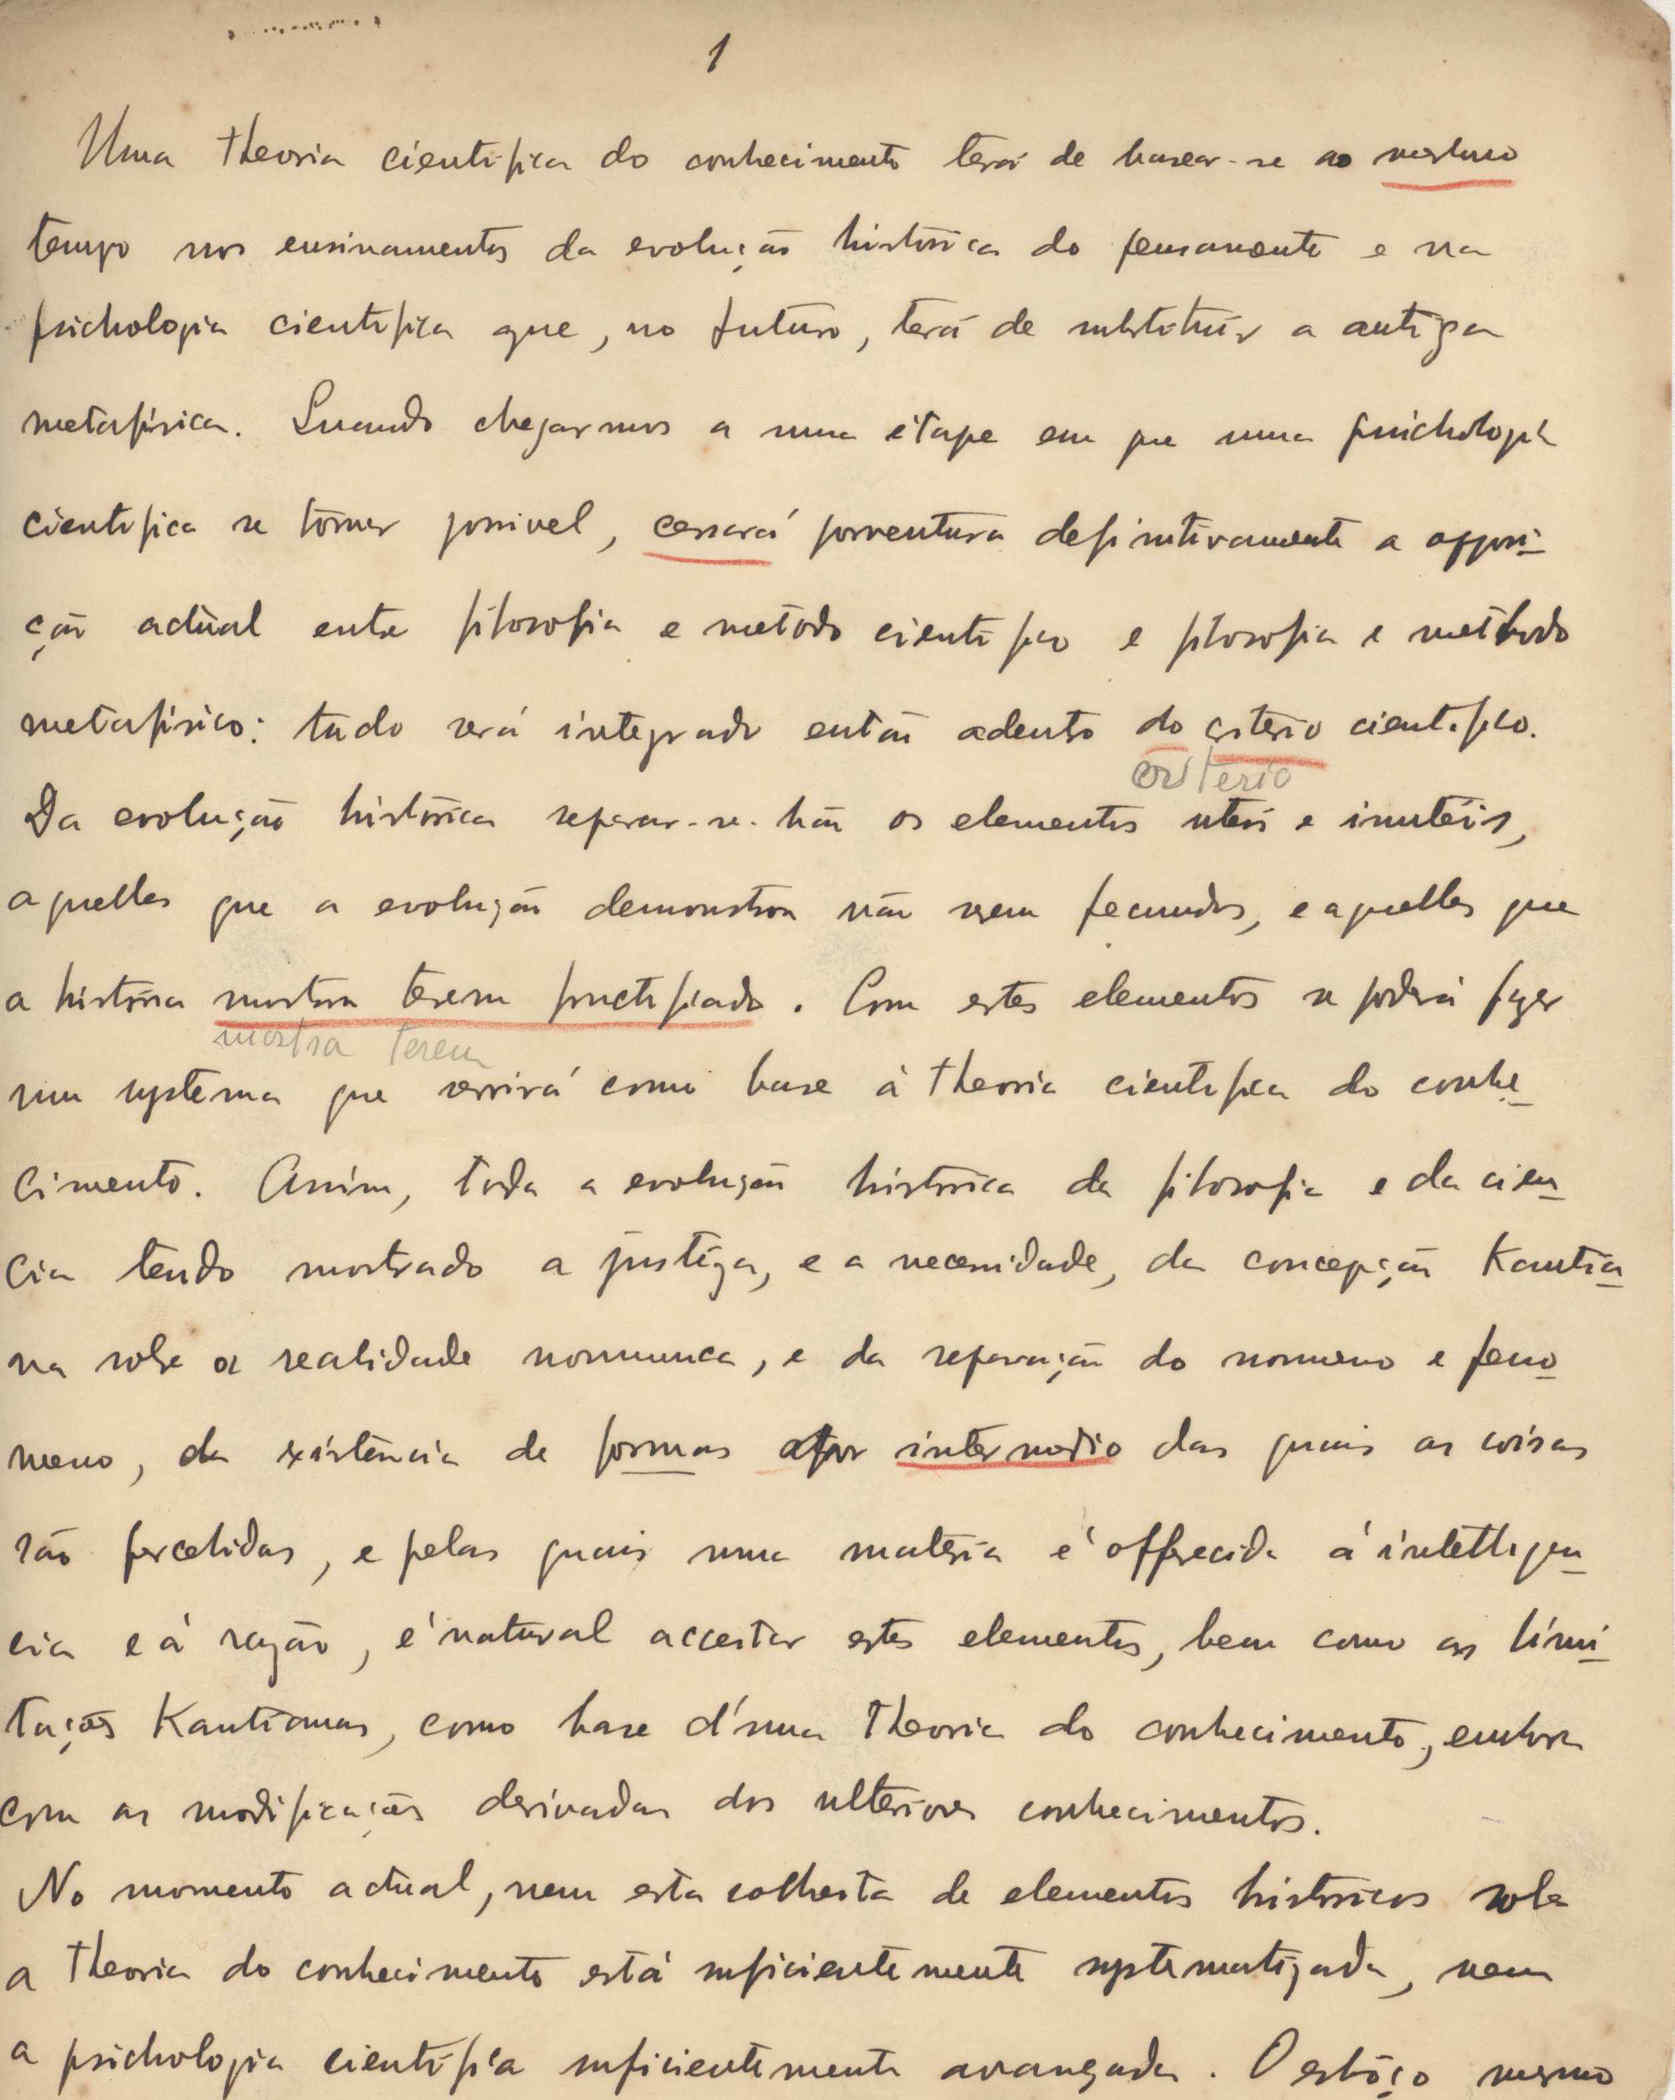 1
Uma theoria cientifica do conhecimento terá de basear-se ao mesmo
tempo nos ensinamentos da evolução histórica do pensamento e na
psichologia cientifica que, no futuro, terá de substituir a antiga
metafísica. Quando chegarmos a uma étape em que uma psichologia
cientifica se torner possivel, cessará porventura definitivamente a opposi-
ção actual entre filosofia e metodo cientifico e filosofia e methodo
metafísico: tudo será integrado então adentro do criterio cientifico.
criterio
Da evolução histórica separar-se-hão os elementos uteis e inuteis,
aquelles que a evolução demonstrou não serem fecundos, e aquelles que
a história mostra terem fructificado. Com estes elementos se poderá fazer
mostra terem
um systema que servirá como base á theoria cientifica do conhe-
cimento. Assim, toda a evolução histórica da filosofia e da cien-
cia tendo mostrado a justiça, e a necessidade, da concepção Kantia-
na sobre a realidade noumenca, e da separação do noumeno e feno-
meno, da existência de formas por intermedio das quais as coisas
são percebidas, e pelas quais uma matéria é offerecida á intelligen-
cia e á razão, é natural acceitar estes elementos, bem como as limi-
tações Kantianas, como base d'uma theoria do conhecimento, embora
com as modificações derivadas dos ulteriores conhecimentos.
No momento actual, nem esta colheita de elementos históricos sobre
a theoria do conhecimento está suficientemente systematizada, nem
a psichologia cientifica suficientemente avançada. O esbôço mesmo